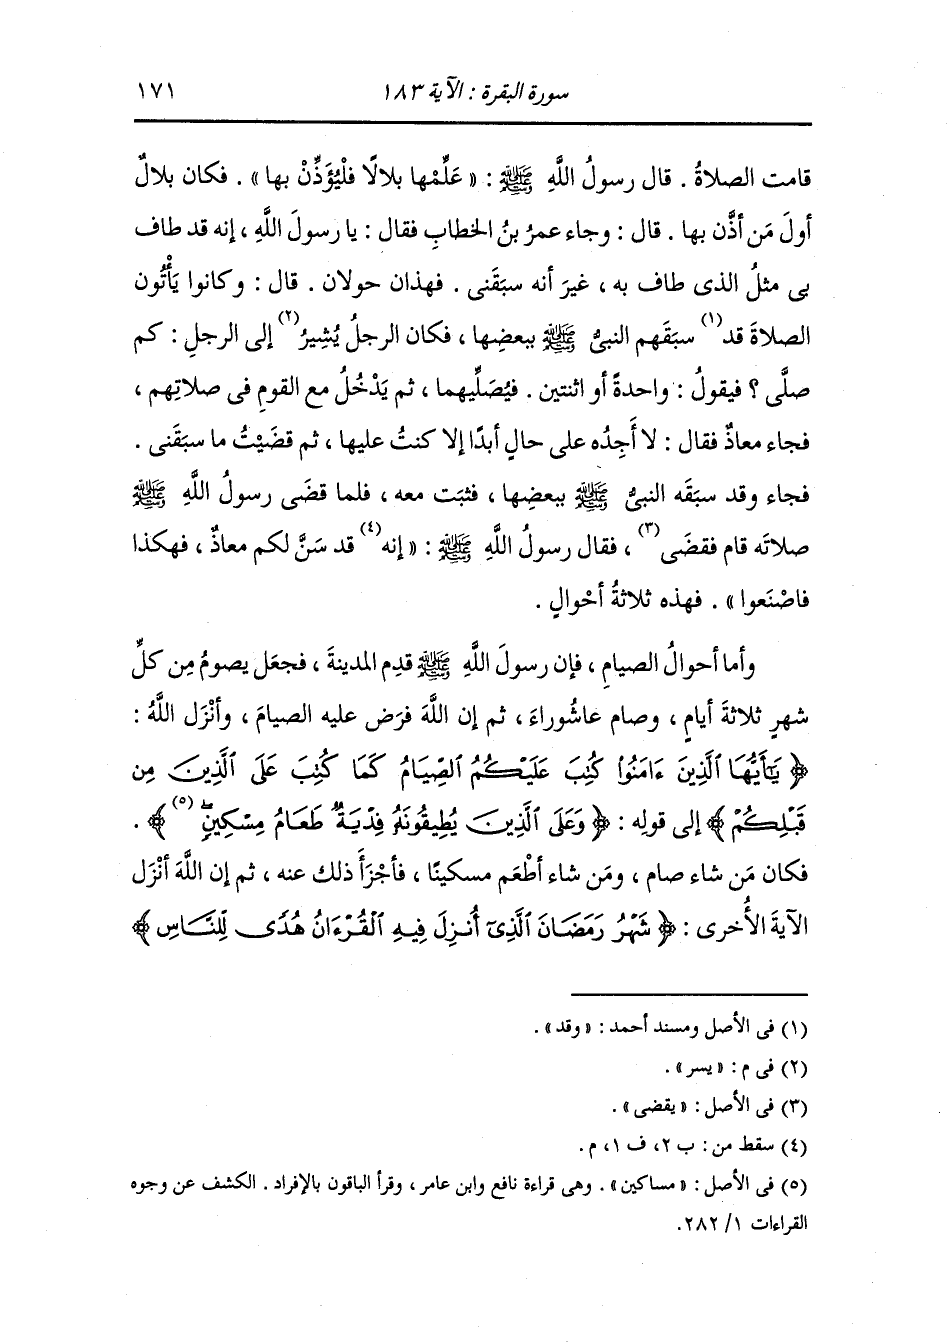 سورة البقرة : الآية ١٨٣ ١٧١
قامت الصلاةُ . قال رسولُ اللَّهِ ﷺ : « عَلِّمْها بلالًا فلْيُؤَذِّنْ بها » . فكان بلالٌ
أولَ مَن أذَّن بها . قال : وجاء عمرُ بنُ الخطابِ فقال : يا رسولَ اللَّهِ ، إنه قد طاف
بى مثلُ الذى طاف به ، غيرَ أنه سبَقَنى . فهذان حولان . قال : وكانوا يَأْتُون
الصلاةَ قد(١) سبَقَهم النبىُّ ﷺ ببعضِها ، فكان الرجلُ يُشِيرُ(٢) إلى الرجلِ : كم
صلَّى ؟ فيقولُ : واحدةً أو اثنتين . فيُصَلِّيهما ، ثم يَدْخُلُ مع القومِ فى صلاتِهم ،
فجاء معاذٌ فقال : لا أَجِدُه على حالٍ أبدًا إلا كنتُ عليها ، ثم قضَيْتُ ما سبَقَنى .
فجاء وقد سبَقَه النبىُّ ﷺ ببعضِها ، فثبَت معه ، فلما قضَى رسولُ اللَّهِ ﷺ
صلاتَه قام فقضَى(٣) ، فقال رسولُ اللَّهِ ﷺ : « إنه(٤) قد سَنَّ لكم معاذٌ ، فهكذا
فاصْنَعوا » . فهذه ثلاثةُ أحْوالٍ .
وأما أحوالُ الصيامِ ، فإن رسولَ اللَّهِ ﷺ قدِم المدينةَ ، فجعَل يصومُ مِن كلِّ
شهرٍ ثلاثةَ أيامٍ ، وصام عاشُوراءَ ، ثم إن اللَّهَ فرَض عليه الصيامَ ، وأنْزَل اللَّهُ :
﴿ يَٰٓأَيُّهَا ٱلَّذِينَ ءَامَنُوا۟ كُتِبَ عَلَيْكُمُ ٱلصِّيَامُ كَمَا كُتِبَ عَلَى ٱلَّذِينَ مِن
قَبْلِكُمْ ﴾ إلى قولِه : ﴿ وَعَلَى ٱلَّذِينَ يُطِيقُونَهُۥ فِدْيَةٌ طَعَامُ مِسْكِينٍۖ(٥) ﴾ .
فكان مَن شاء صام ، ومَن شاء أطْعَم مسكينًا ، فأجْزَأَ ذلك عنه ، ثم إن اللَّهَ أنْزَل
الآيةَ الأُخرى : ﴿ شَهْرُ رَمَضَانَ ٱلَّذِىٓ أُنزِلَ فِيهِ ٱلْقُرْءَانُ هُدًى لِّلنَّاسِ ﴾
(١) فى الأصل ومسند أحمد : « وقد » .
(٢) فى م : « يسر » .
(٣) فى الأصل : « يقضى » .
(٤) سقط من : ب ٢، ف ١، م .
(٥) فى الأصل : « مساكين » . وهى قراءة نافع وابن عامر ، وقرأ الباقون بالإفراد . الكشف عن وجوه
القراءات ١/ ٢٨٢.